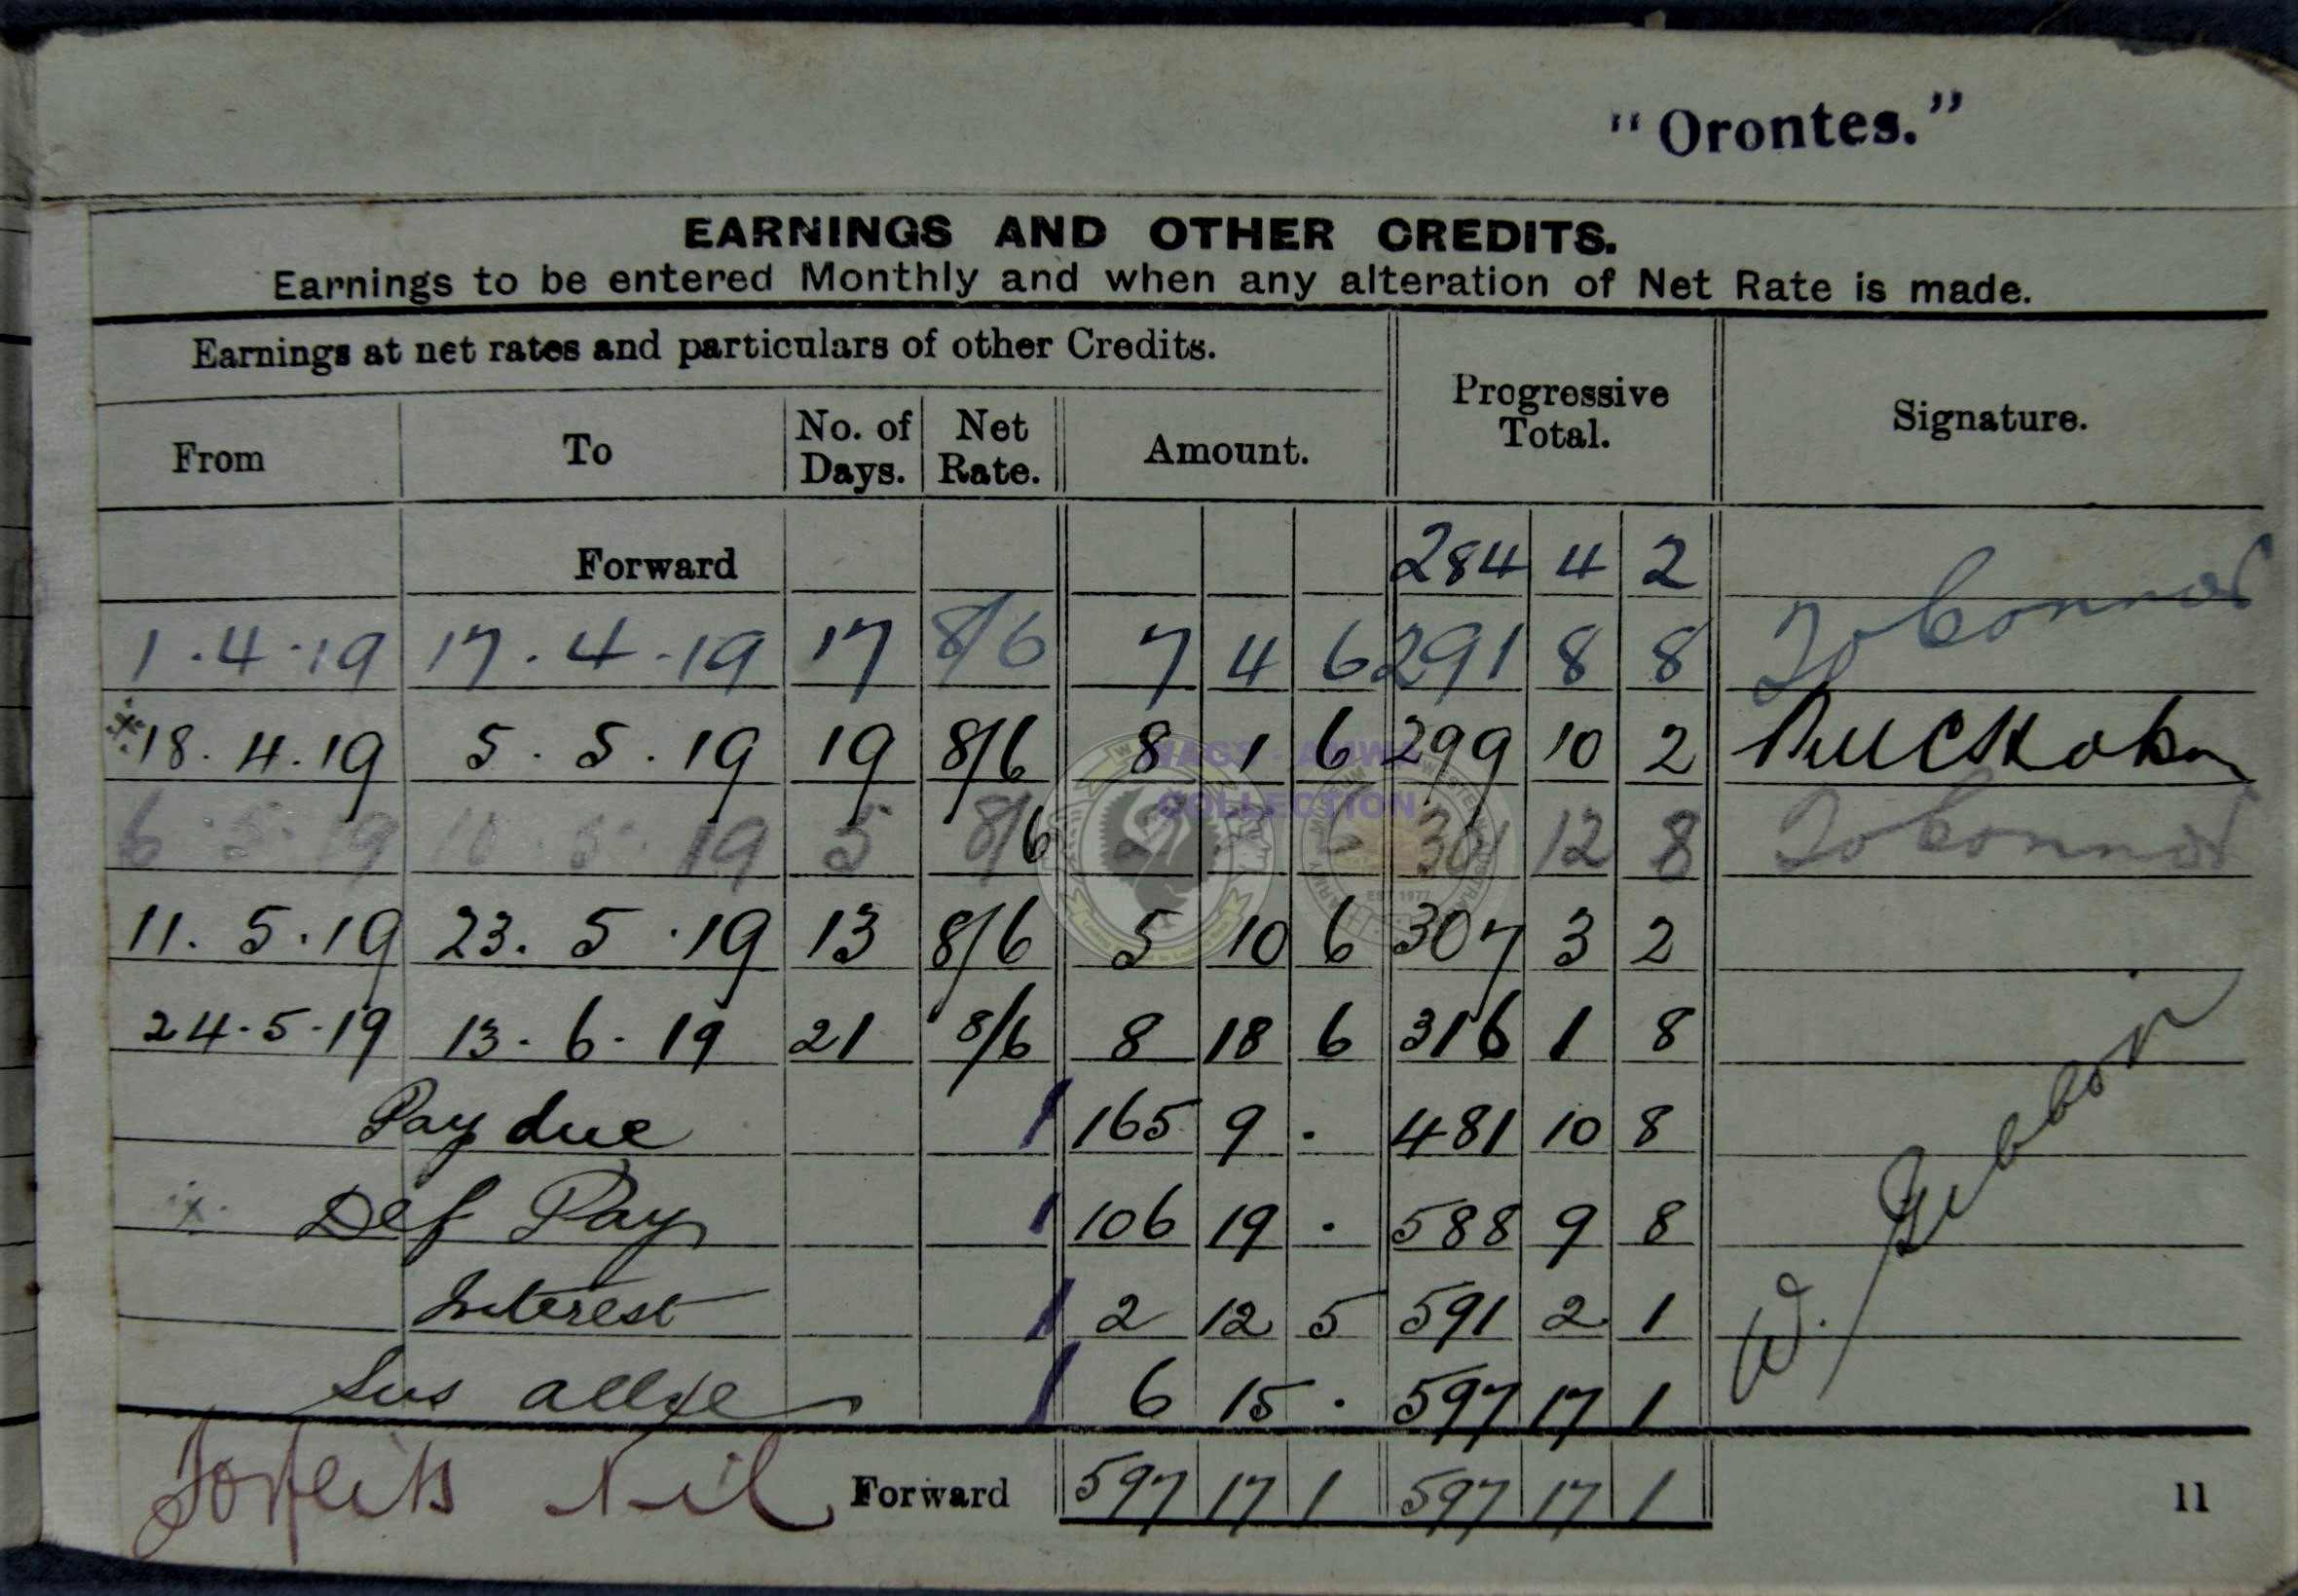 "Orontes."
EARNINGS AND OTHER CREDITS.
Earnings to be entered Monthly and when any alteration of Net Rate is made.
Earnings at net rates and particulars of other Credits.
From To No. of Days. Net Rate. Amount. Progressive Total. Signature.
Forward 284 4 2
1.4.19 17.4.19 17 8/6 7 4 6 291 8 8
18.4.19 5.5.19 19 8/6 8 1 6 299 10 2
6.5.19 10.5.19 5 8/6 2 2 6 301 12 8
11.5.19 23.5.19 13 8/6 5 10 6 307 3 2
24.5.19 13.6.19 21 8/6 8 18 6 316 1 8
Pay due 165 9 . 481 10 8
x Def Pay 106 19 . 588 9 8
Interest 2 12 5 591 2 1
Sus allce 6 15 . 597 17 1
W. Gibbon
Forfeits Nil Forward 597 17 1 597 17 1
11
COLLECTION